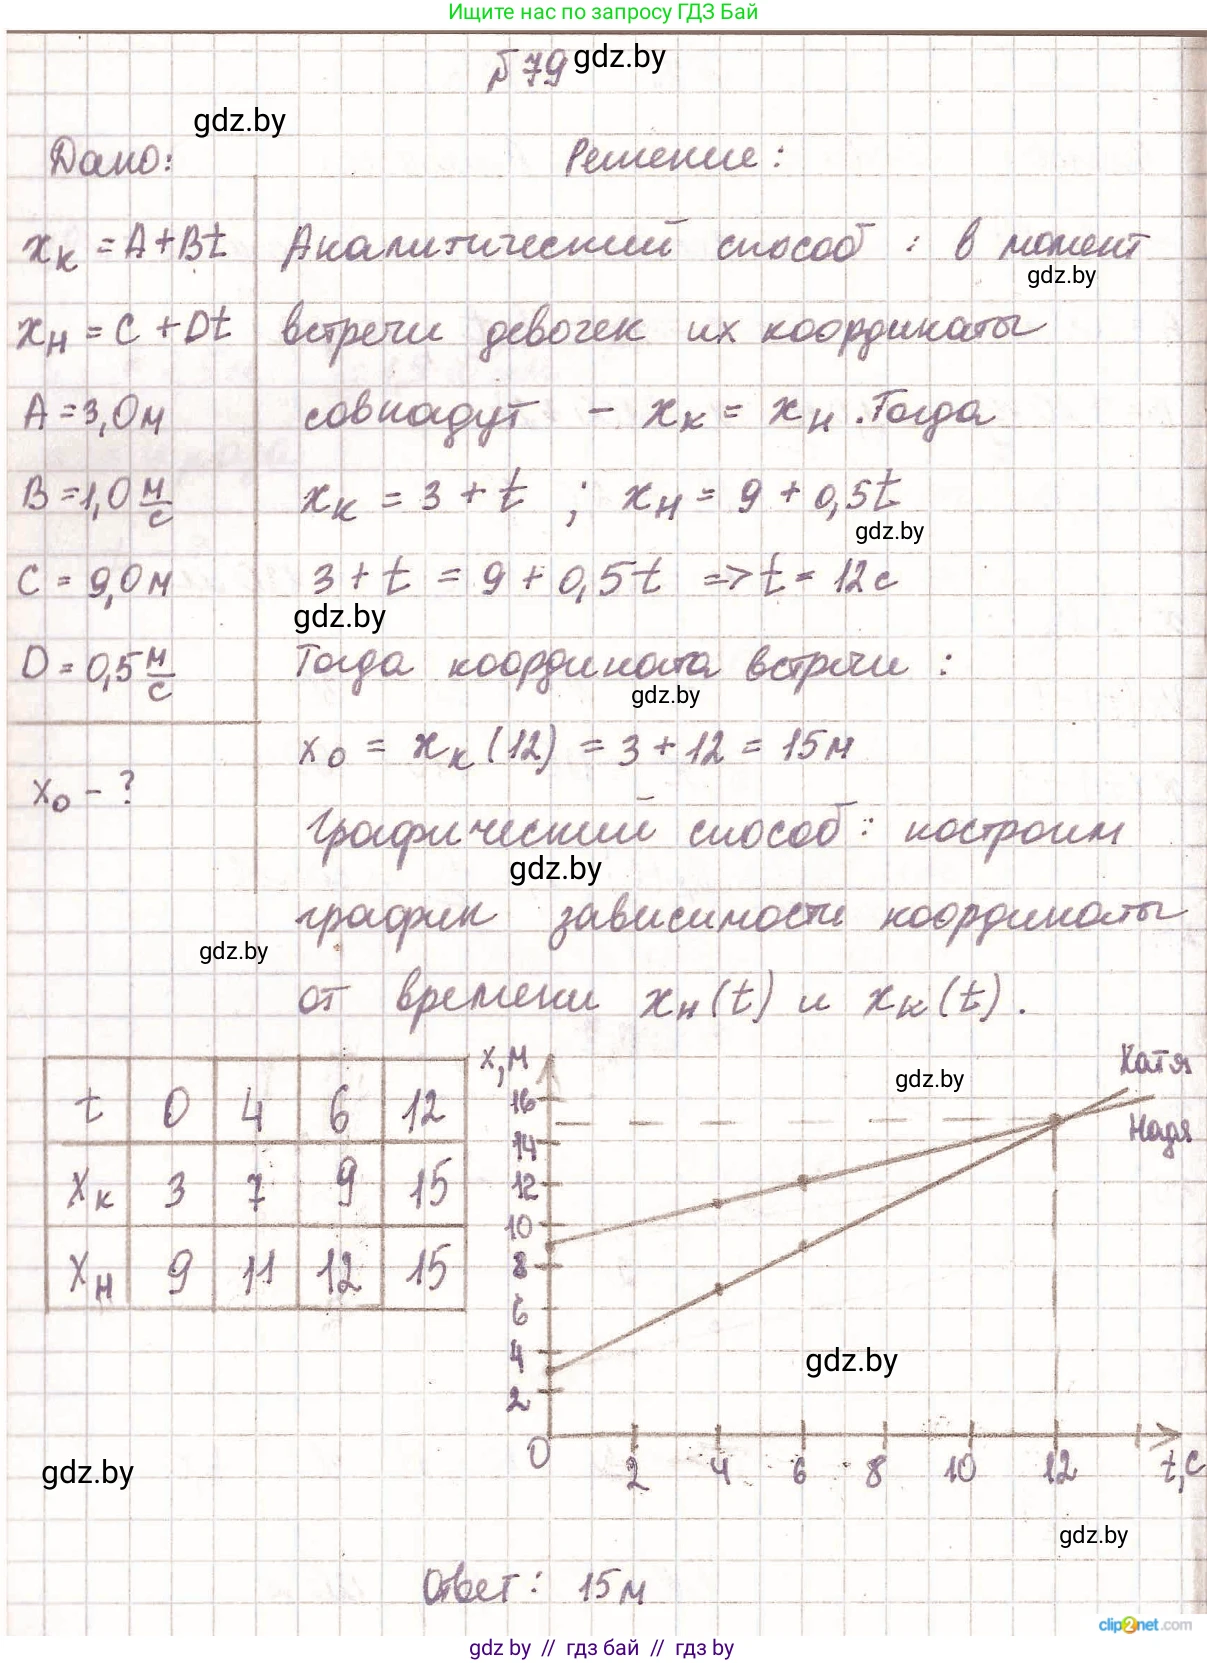 Ищите нас по запросу ГДЗ Бай
№79 gdz.by
gdz.by
Дано: Решение:
xк = A+Bt Аналитический способ : в момент
gdz.by
xн = C +Dt встречи девочек их координаты
A = 3,0 м совпадут - xк = xн . Тогда
B = 1,0 м/с xк = 3 + t ; xн = 9 + 0,5t
gdz.by
C = 9,0 м 3 + t = 9 + 0,5t => t = 12 с
gdz.by
D = 0,5 м/с Тогда координата встречи :
gdz.by
x0 = xк (12) = 3 + 12 = 15 м
x0 - ?
Графический способ : построим
gdz.by
график зависимости координаты
gdz.by
от времени xн (t) и xк (t) .
x, м Катя
gdz.by
t 0 4 6 12
16
Надя
14
xк 3 7 9 15
12
10
xн 9 11 12 15
8
6
4
gdz.by
2
0 2 4 6 8 10 12 t, с
gdz.by
gdz.by
Ответ : 15 м
clip2net.com
gdz by // гдз бай // гдз by